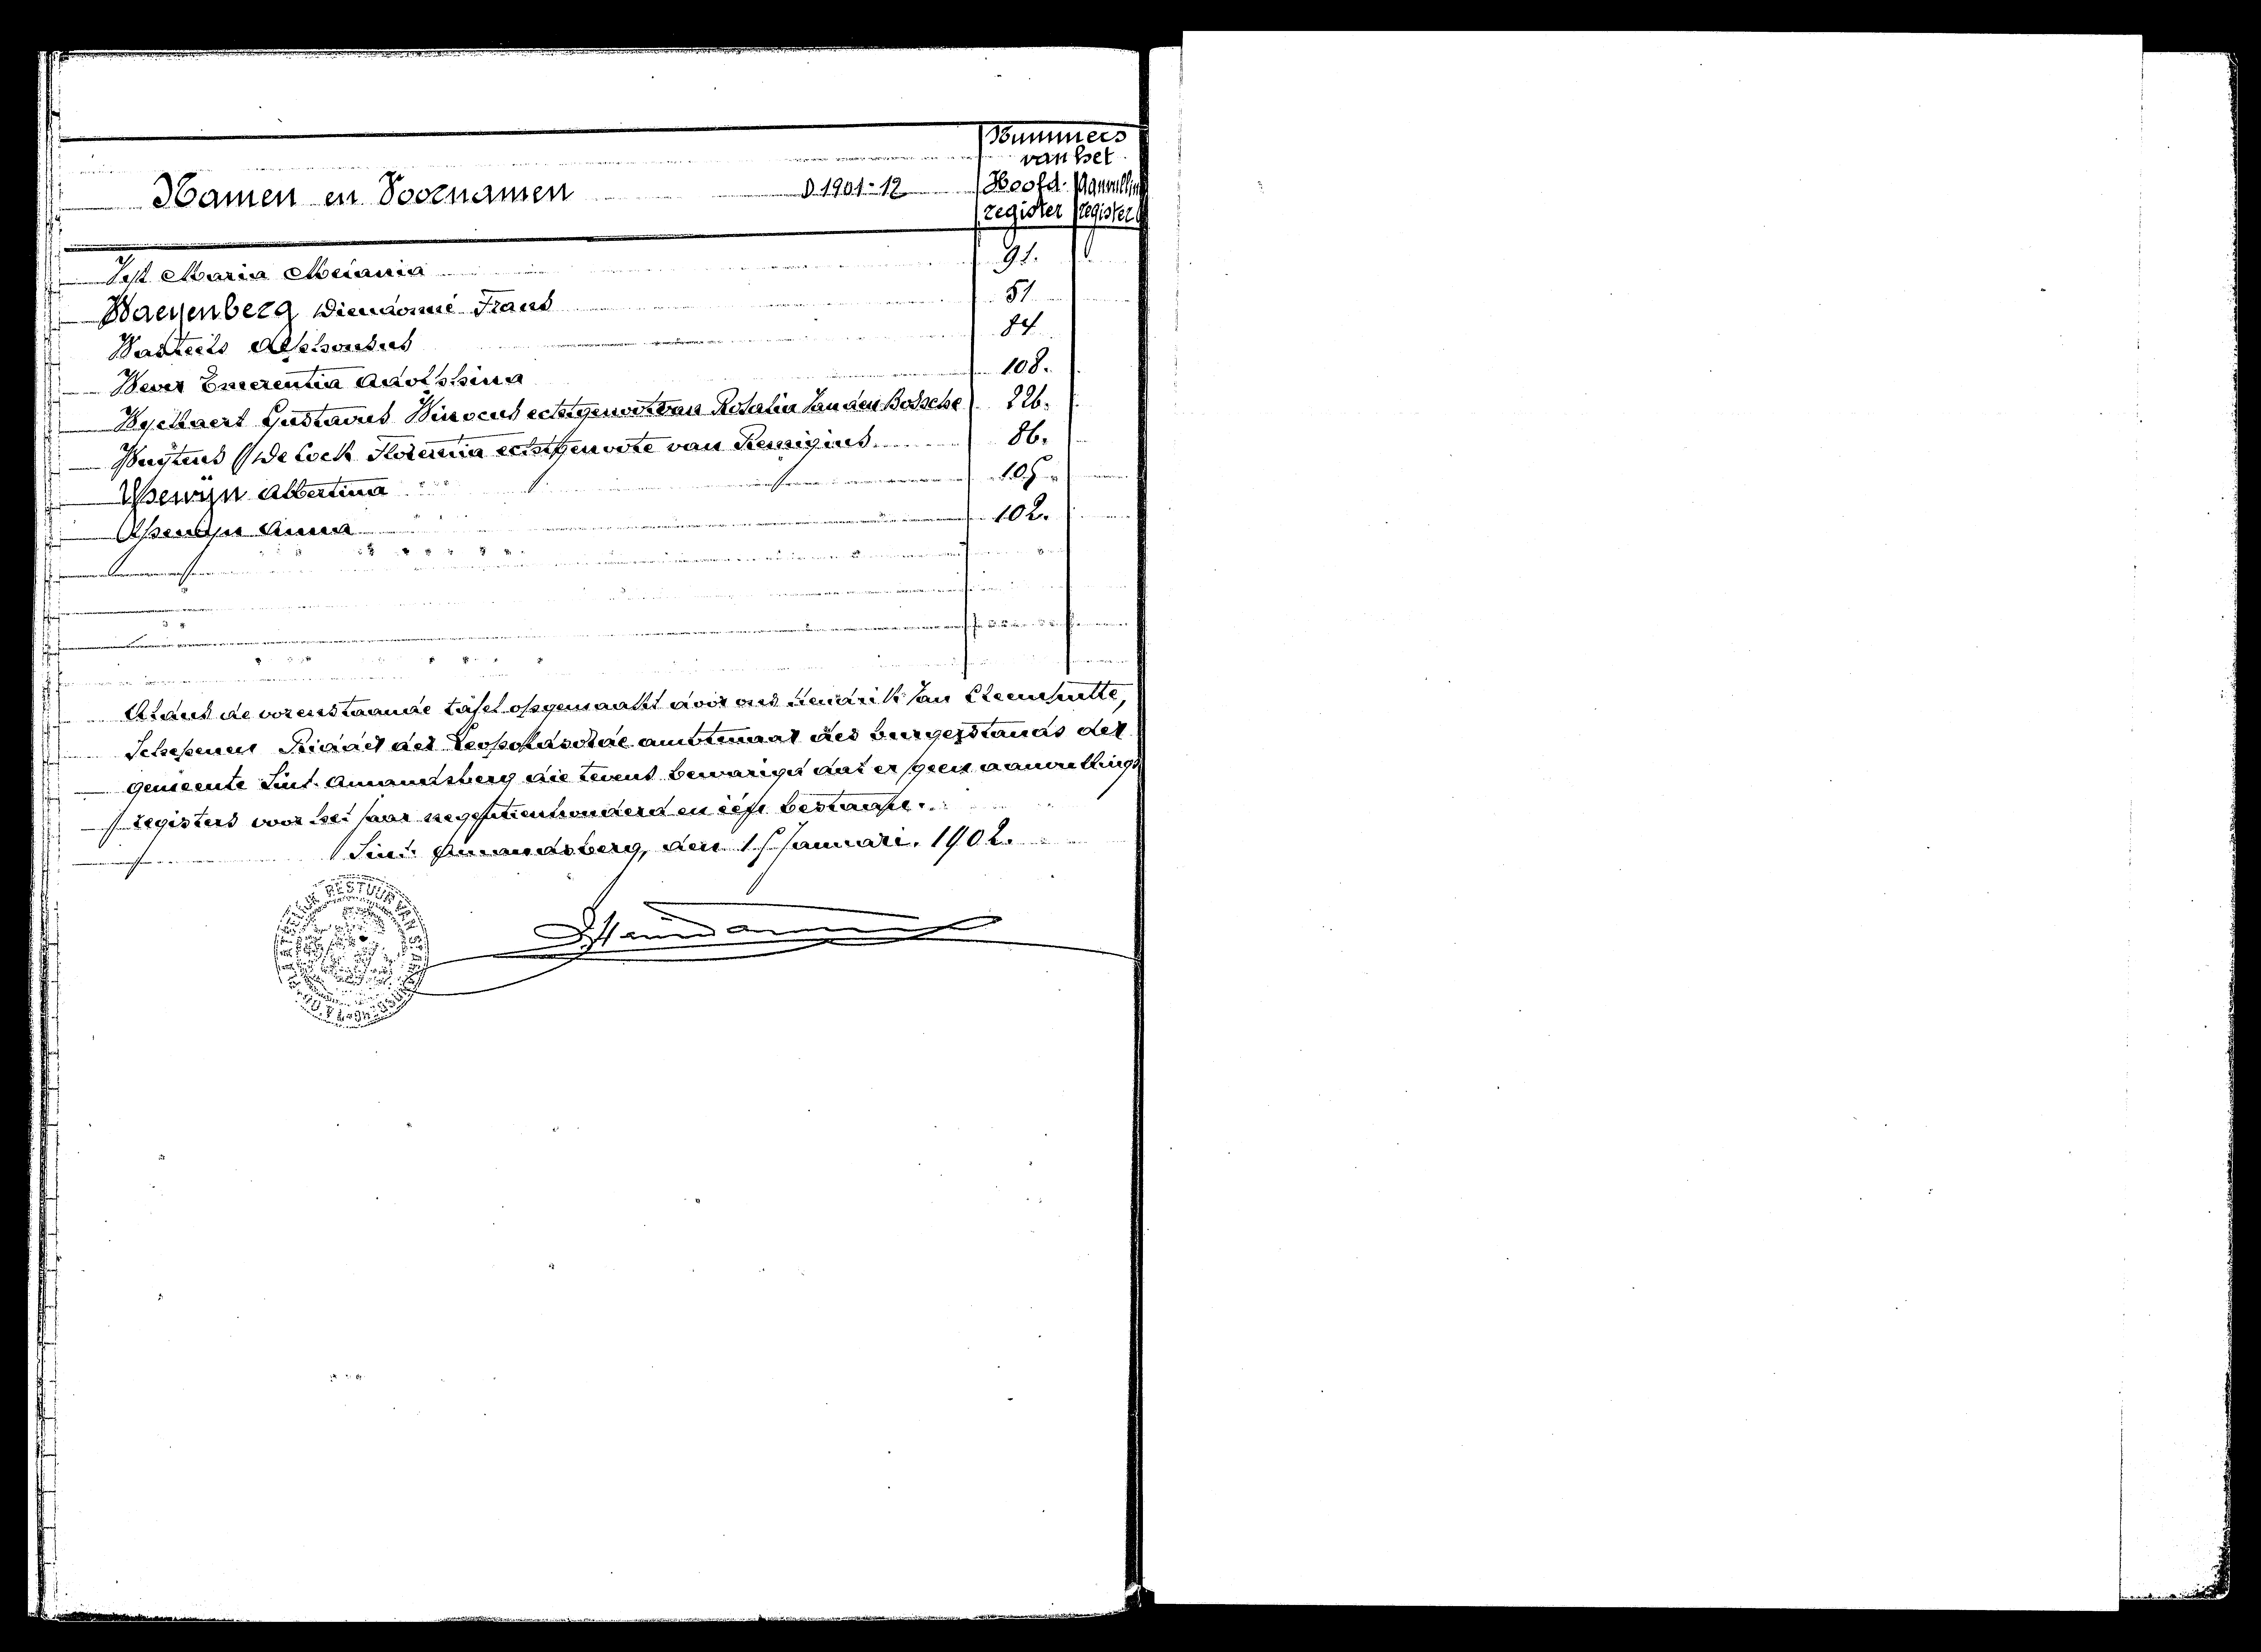 Nummers
van het
Namen en Voornamen D 1901-12 Hoofd- Aanvullin
register register
Maria Melania 91.
Waeyenberg Dieudonné Frans 51
Wauteils Alphonsus 84
Wever Emerentia Adolphina 108.
Wyckaert Gustavus Winocus echtgenoot van Rosalia Van den Bossche 226.
Wuÿtens (De Cock Florentia echtgenoote van Remigius 86.
Ysewijn Albertina 105
Ysewijn Anna 102.
Aldus de vorenstaande tafel opgemaakt door ons Hendrik Van Cleemputte,
Schepenen Ridder der Leopoldsorde ambtenaar des burgerstands der
gemeente Sint-Amandsberg die tevens bewarigd dat er geen aanvullings
registers voor het jaar negentienhonderd en één bestaan.
Sint-Amandsberg, den 15 Januari. 1902.
BESTUUR VAN ST